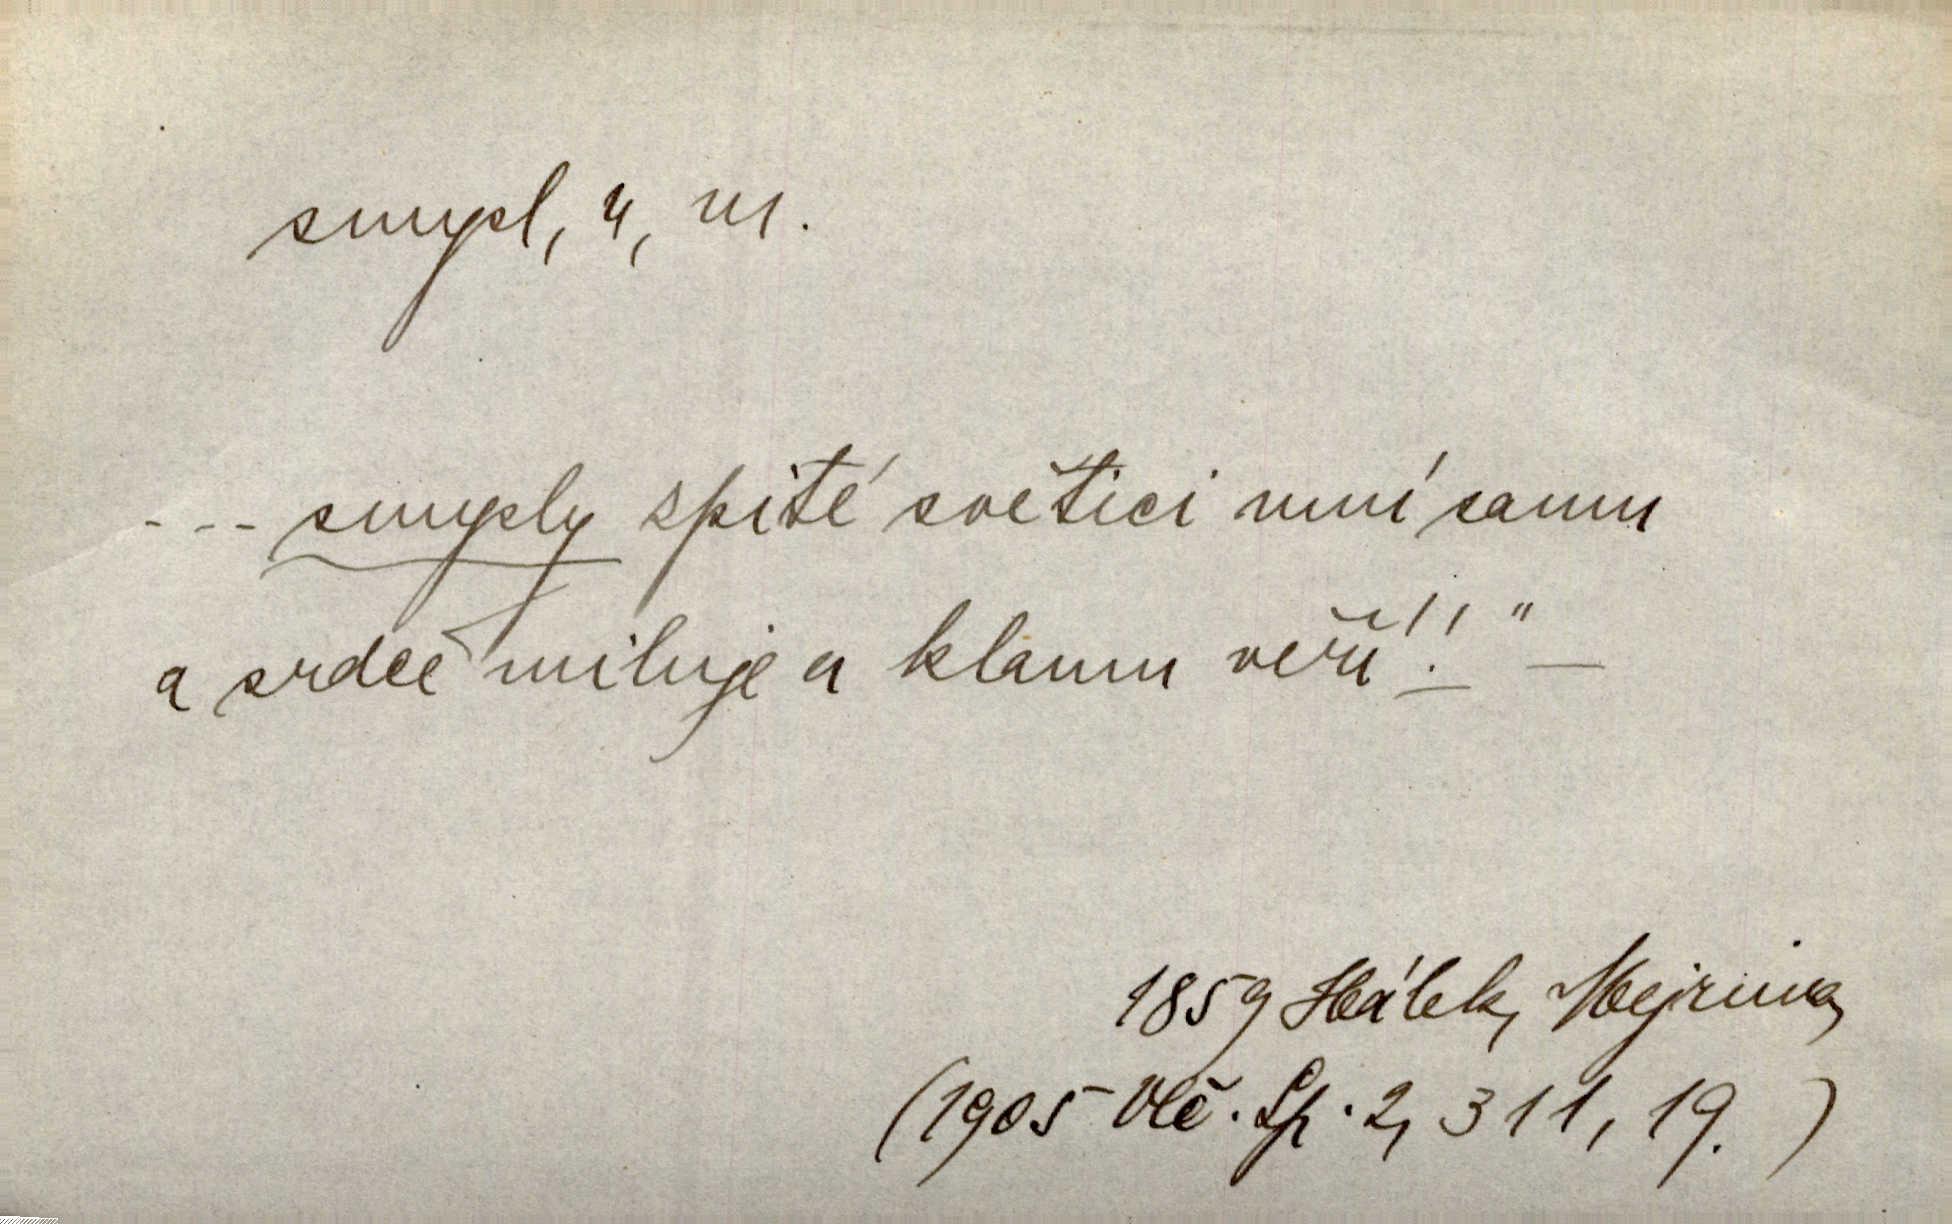 smysl, u, m.
- - - smysly zpité světici mní samu
a srdce miluje a klamu věří!!" —
1859 Hálek, Mejrima
(1905 Vlč. Sp. 2, 311, 19. )